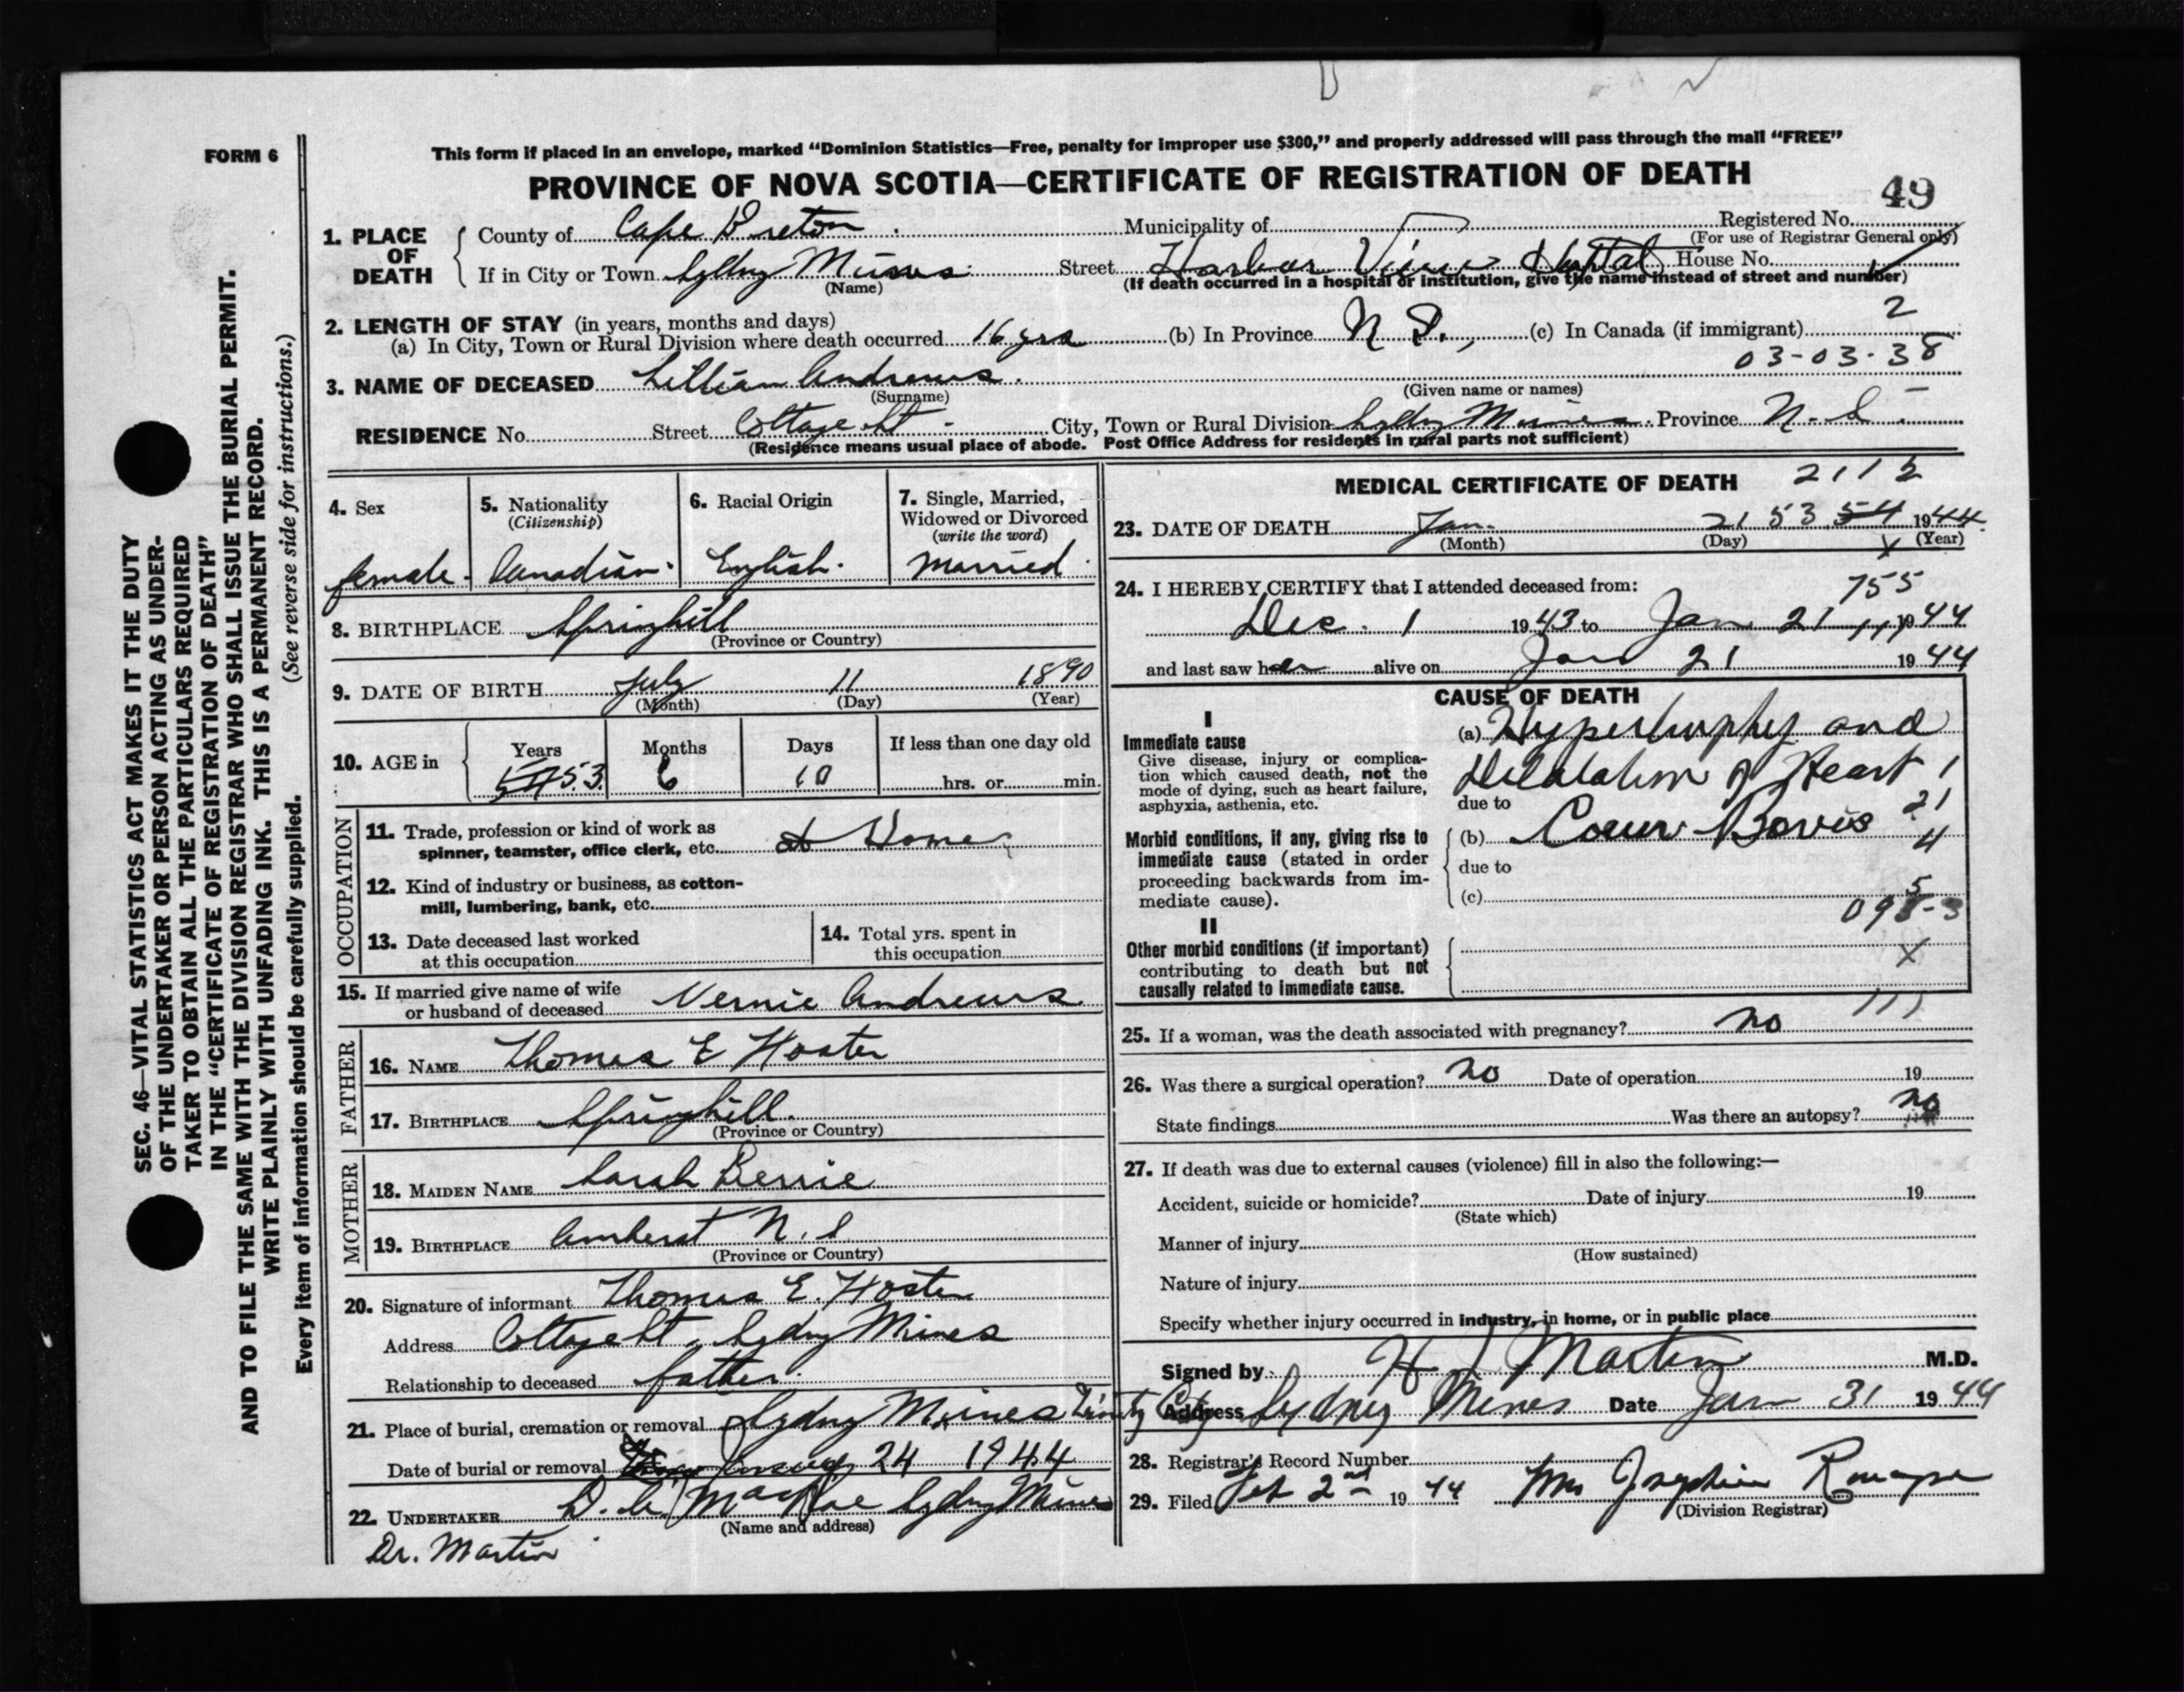 FORM 6
This form if placed in an envelope, marked “Dominion Statistics—Free, penalty for improper use $300,” and properly addressed will pass through the mail “FREE”
PROVINCE OF NOVA SCOTIA—CERTIFICATE OF REGISTRATION OF DEATH
49
1. PLACE OF DEATH
County of Cape Breton Municipality of Registered No.
(For use of Registrar General only)
If in City or Town Sydney Mines Street Harbor View Hospital House No.
(Name) (If death occurred in a hospital or institution, give the name instead of street and number)
2. LENGTH OF STAY (in years, months and days) 2
(a) In City, Town or Rural Division where death occurred 16 yrs (b) In Province N S. (c) In Canada (if immigrant)
03-03-38
3. NAME OF DECEASED Lillian Andrews.
(Surname) (Given name or names)
RESIDENCE No. Street Cottage St - City, Town or Rural Division Sydney Mines Province N-S.
(Residence means usual place of abode. Post Office Address for residents in rural parts not sufficient)
4. Sex female.
5. Nationality (Citizenship) Canadian.
6. Racial Origin English.
7. Single, Married, Widowed or Divorced (write the word) Married
8. BIRTHPLACE Springhill
(Province or Country)
9. DATE OF BIRTH July 11 1890
(Month) (Day) (Year)
10. AGE in Years 53. Months 6 Days 10 If less than one day old hrs. or min.
OCCUPATION
11. Trade, profession or kind of work as
spinner, teamster, office clerk, etc. at Home
12. Kind of industry or business, as cotton-
mill, lumbering, bank, etc.
13. Date deceased last worked
at this occupation
14. Total yrs. spent in
this occupation
15. If married give name of wife
or husband of deceased Vernie Andrews
FATHER
16. NAME Thomas E Hoster
17. BIRTHPLACE Springhill.
(Province or Country)
MOTHER
18. MAIDEN NAME Sarah Berrie
19. BIRTHPLACE Amherst N. S
(Province or Country)
20. Signature of informant Thomas E. Hoster
Address Cottage St, Sydney Mines
Relationship to deceased father.
21. Place of burial, cremation or removal Sydney Mines Trinity
Date of burial or removal January 24 1944
22. UNDERTAKER D. A. MacRae Sydney Mines
(Name and address)
Dr. Martin
MEDICAL CERTIFICATE OF DEATH
23. DATE OF DEATH Jan. 21 53 54 1944
(Month) (Day) (Year)
755
24. I HEREBY CERTIFY that I attended deceased from:
Dec. 1 1943 to Jan 21 1944
and last saw her alive on Jan 21 1944
CAUSE OF DEATH
I
Immediate cause
Give disease, injury or complica-
tion which caused death, not the
mode of dying, such as heart failure,
asphyxia, asthenia, etc.
(a) Hypertrophy and
Dilatation of Heart 1
due to
21
(b) Coeur Bovis
4
due to
(c)
Morbid conditions, if any, giving rise to
immediate cause (stated in order
proceeding backwards from im-
mediate cause).
II
Other morbid conditions (if important)
contributing to death but not
causally related to immediate cause.
25. If a woman, was the death associated with pregnancy? no
26. Was there a surgical operation? no Date of operation 19
State findings Was there an autopsy? no
27. If death was due to external causes (violence) fill in also the following:—
Accident, suicide or homicide? Date of injury 19
(State which)
Manner of injury
(How sustained)
Nature of injury
Specify whether injury occurred in industry, in home, or in public place
Signed by H L Martin M.D.
Address Sydney Mines Date Jan 31 1944
28. Registrar's Record Number
29. Filed Feb 2nd 1944 Mrs Josephine
(Division Registrar)
SEC. 46—VITAL STATISTICS ACT MAKES IT THE DUTY
OF THE UNDERTAKER OR PERSON ACTING AS UNDER-
TAKER TO OBTAIN ALL THE PARTICULARS REQUIRED
IN THE “CERTIFICATE OF REGISTRATION OF DEATH”
AND TO FILE THE SAME WITH THE DIVISION REGISTRAR WHO SHALL ISSUE THE BURIAL PERMIT.
WRITE PLAINLY WITH UNFADING INK. THIS IS A PERMANENT RECORD.
Every item of information should be carefully supplied. (See reverse side for instructions.)